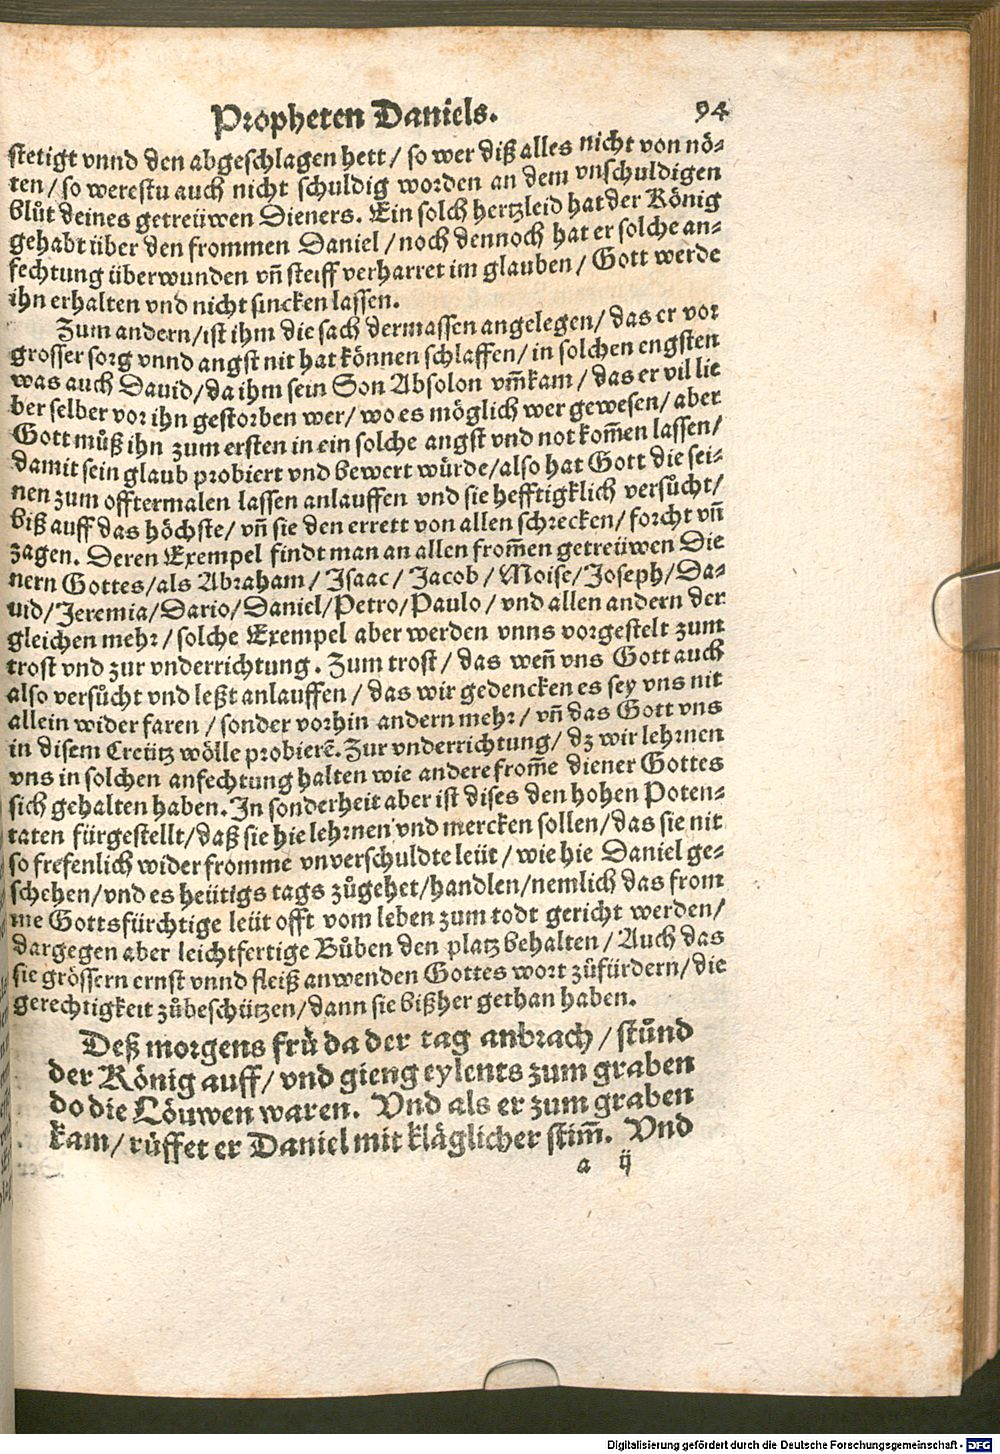 Propheten Daniels. 94
stetigt vnnd den abgeschlagen hett / so wer diß alles nicht von nö⸗
ten / so werestu auch nicht schuldig worden an dem vnschuldigen
blůt deines getreüwen Dieners. Ein solch hertzleid hat der König
gehabt über den frommen Daniel / noch dennoch hat er solche an⸗
fechtung überwunden vñ steiff verharret im glauben / Gott werde
ihn erhalten vnd nicht sincken lassen.
Zum andern / ist ihm die sach dermassen angelegen / das er vor
grosser sorg vnnd angst nit hat können schlaffen / in solchen engsten
was auch Dauid / da ihm sein Son Absolon vm̃kam / das er vil lie
ber selber vor ihn gestorben wer / wo es möglich wer gewesen / aber
Gott můß ihn zum ersten in ein solche angst vnd not kom̃en lassen /
damit sein glaub probiert vnd bewert würde / also hat Gott die sei⸗
nen zum offtermalen lassen anlauffen vnd sie hefftigklich versůcht /
biß auff das höchste / vñ sie den errett von allen schrecken / forcht vñ
zagen. Deren Exempel findt man an allen from̃en getreüwen Die
nern Gottes / als Abraham / Isaac / Jacob / Moise / Joseph / Da⸗
uid / Jeremia / Dario / Daniel / Petro / Paulo / vnd allen andern der
gleichen mehr / solche Exempel aber werden vnns vorgestelt zum
trost vnd zur vnderrichtung. Zum trost / das weñ vns Gott auch
also versůcht vnd leßt anlauffen / das wir gedencken es sey vns nit
allein widerfaren / sonder vorhin andern mehr / vñ das Gott vns
in disem Creütz wölle probierẽ. Zur vnderrichtung / dz wir lehrnen
vns in solchen anfechtung halten wie andere from̃e diener Gottes
sich gehalten haben. In sonderheit aber ist dises den hohen Poten⸗
taten fürgestellt / daß sie hie lehrnen vnd mercken sollen / das sie nit
so frefenlich wider fromme vnverschuldte leüt / wie hie Daniel ge⸗
schehen / vnd es heütigs tags zůgehet / handlen / nemlich das from
me Gottsfürchtige leüt offt vom leben zum todt gericht werden /
dargegen aber leichtfertige Bůben den platz behalten / Auch das
sie grössern ernst vnnd fleiß anwenden Gottes wort zůfürdern / die
gerechtigkeit zůbeschützen / dann sie bißher gethan haben.
Deß morgens frů da der tag anbrach / stůnd
der König auff / vnd gieng eylents zum graben
do die Löuwen waren. Vnd als er zum graben
kam / růffet er Daniel mit kläglicher stim̃. Vnd
a ij
Digitalisierung gefördert durch die Deutsche Forschungsgemeinschaft - DFG